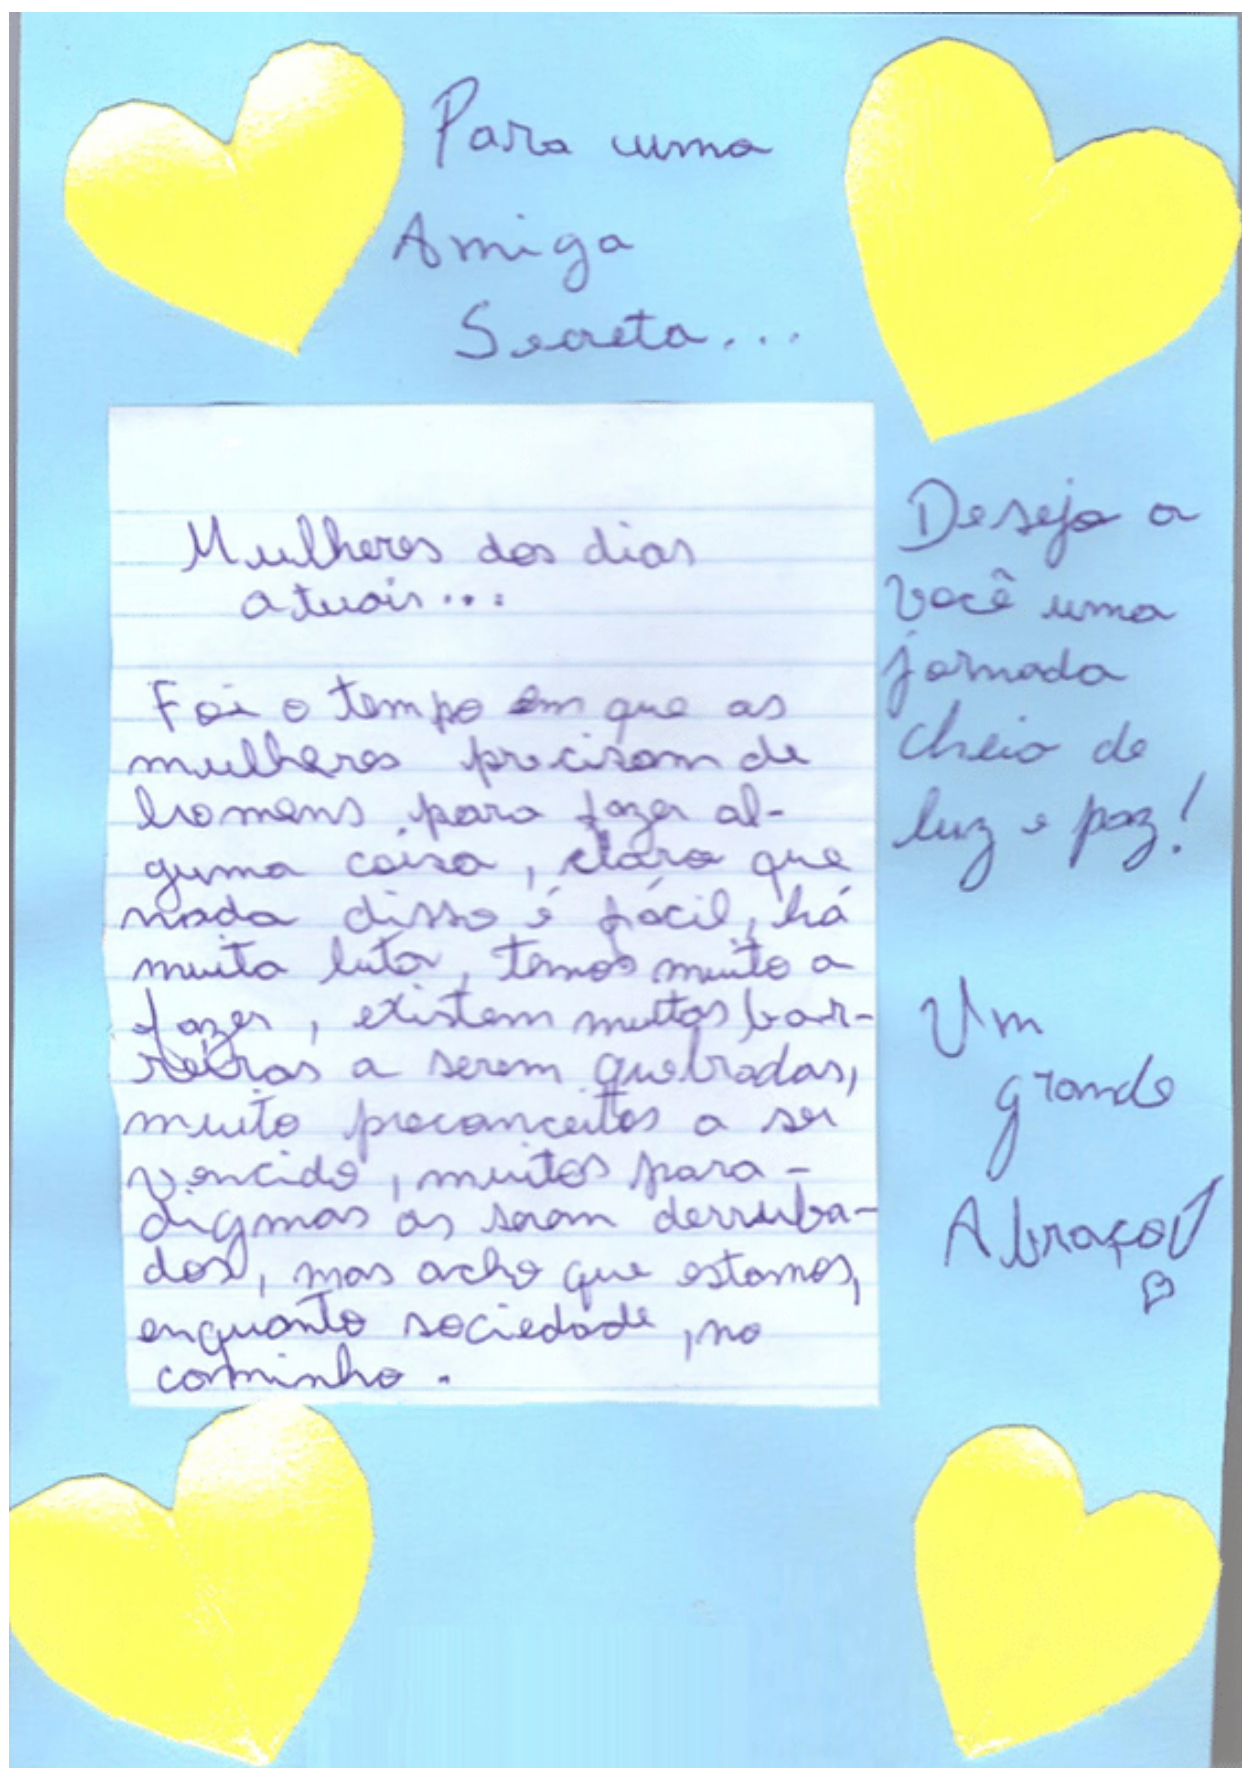 Para uma
Amiga
Secreta...
Mulheres dos dias
atuais...
Foi o tempo em que as
mulheres precisam de
homens para fazer al-
guma coisa, claro que
nada disso é fácil, há
muita luta, temos muito a
fazer, existem muitas bar-
reiras a serem quebradas,
muito preconceitos a ser
vencido, muitos para-
digmas as seram derruba-
dos, mas acho que estamos,
enquanto sociedade, no
caminho.
Desejo a
você uma
jornada
cheia de
luz e paz!
Um
grande
Abraço!